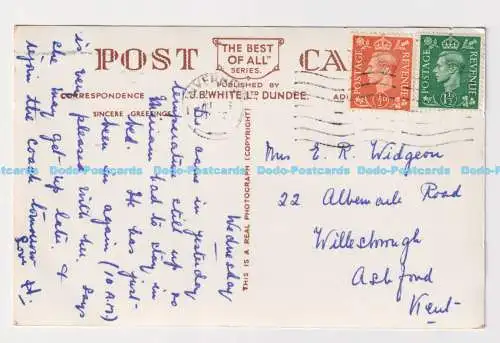 POST CARD
THE BEST
OF ALL
SERIES.
PUBLISHED BY
J.B.WHITE LTD DUNDEE.
CORRESPONDENCE
SINCERE GREETINGS
THIS IS A REAL PHOTOGRAPH (COPYRIGHT)
POSTAGE
REVENUE
½D
POSTAGE
REVENUE
1½D
Wednesday
It came in yesterday
temperature still up so
Miriam had to stay in
bed. He has just
been in again (10 A.M)
is very pleased with her. Says
she may get up later &
rejoin the coach tomorrow
Love
Mrs E. R. Widgeon
22 Albemarle Road
Willesborough
Ashford
Kent
Dodo-Postcards Dodo-Postcards Dodo-Postcards Dodo-Postcards Dodo-Postcards